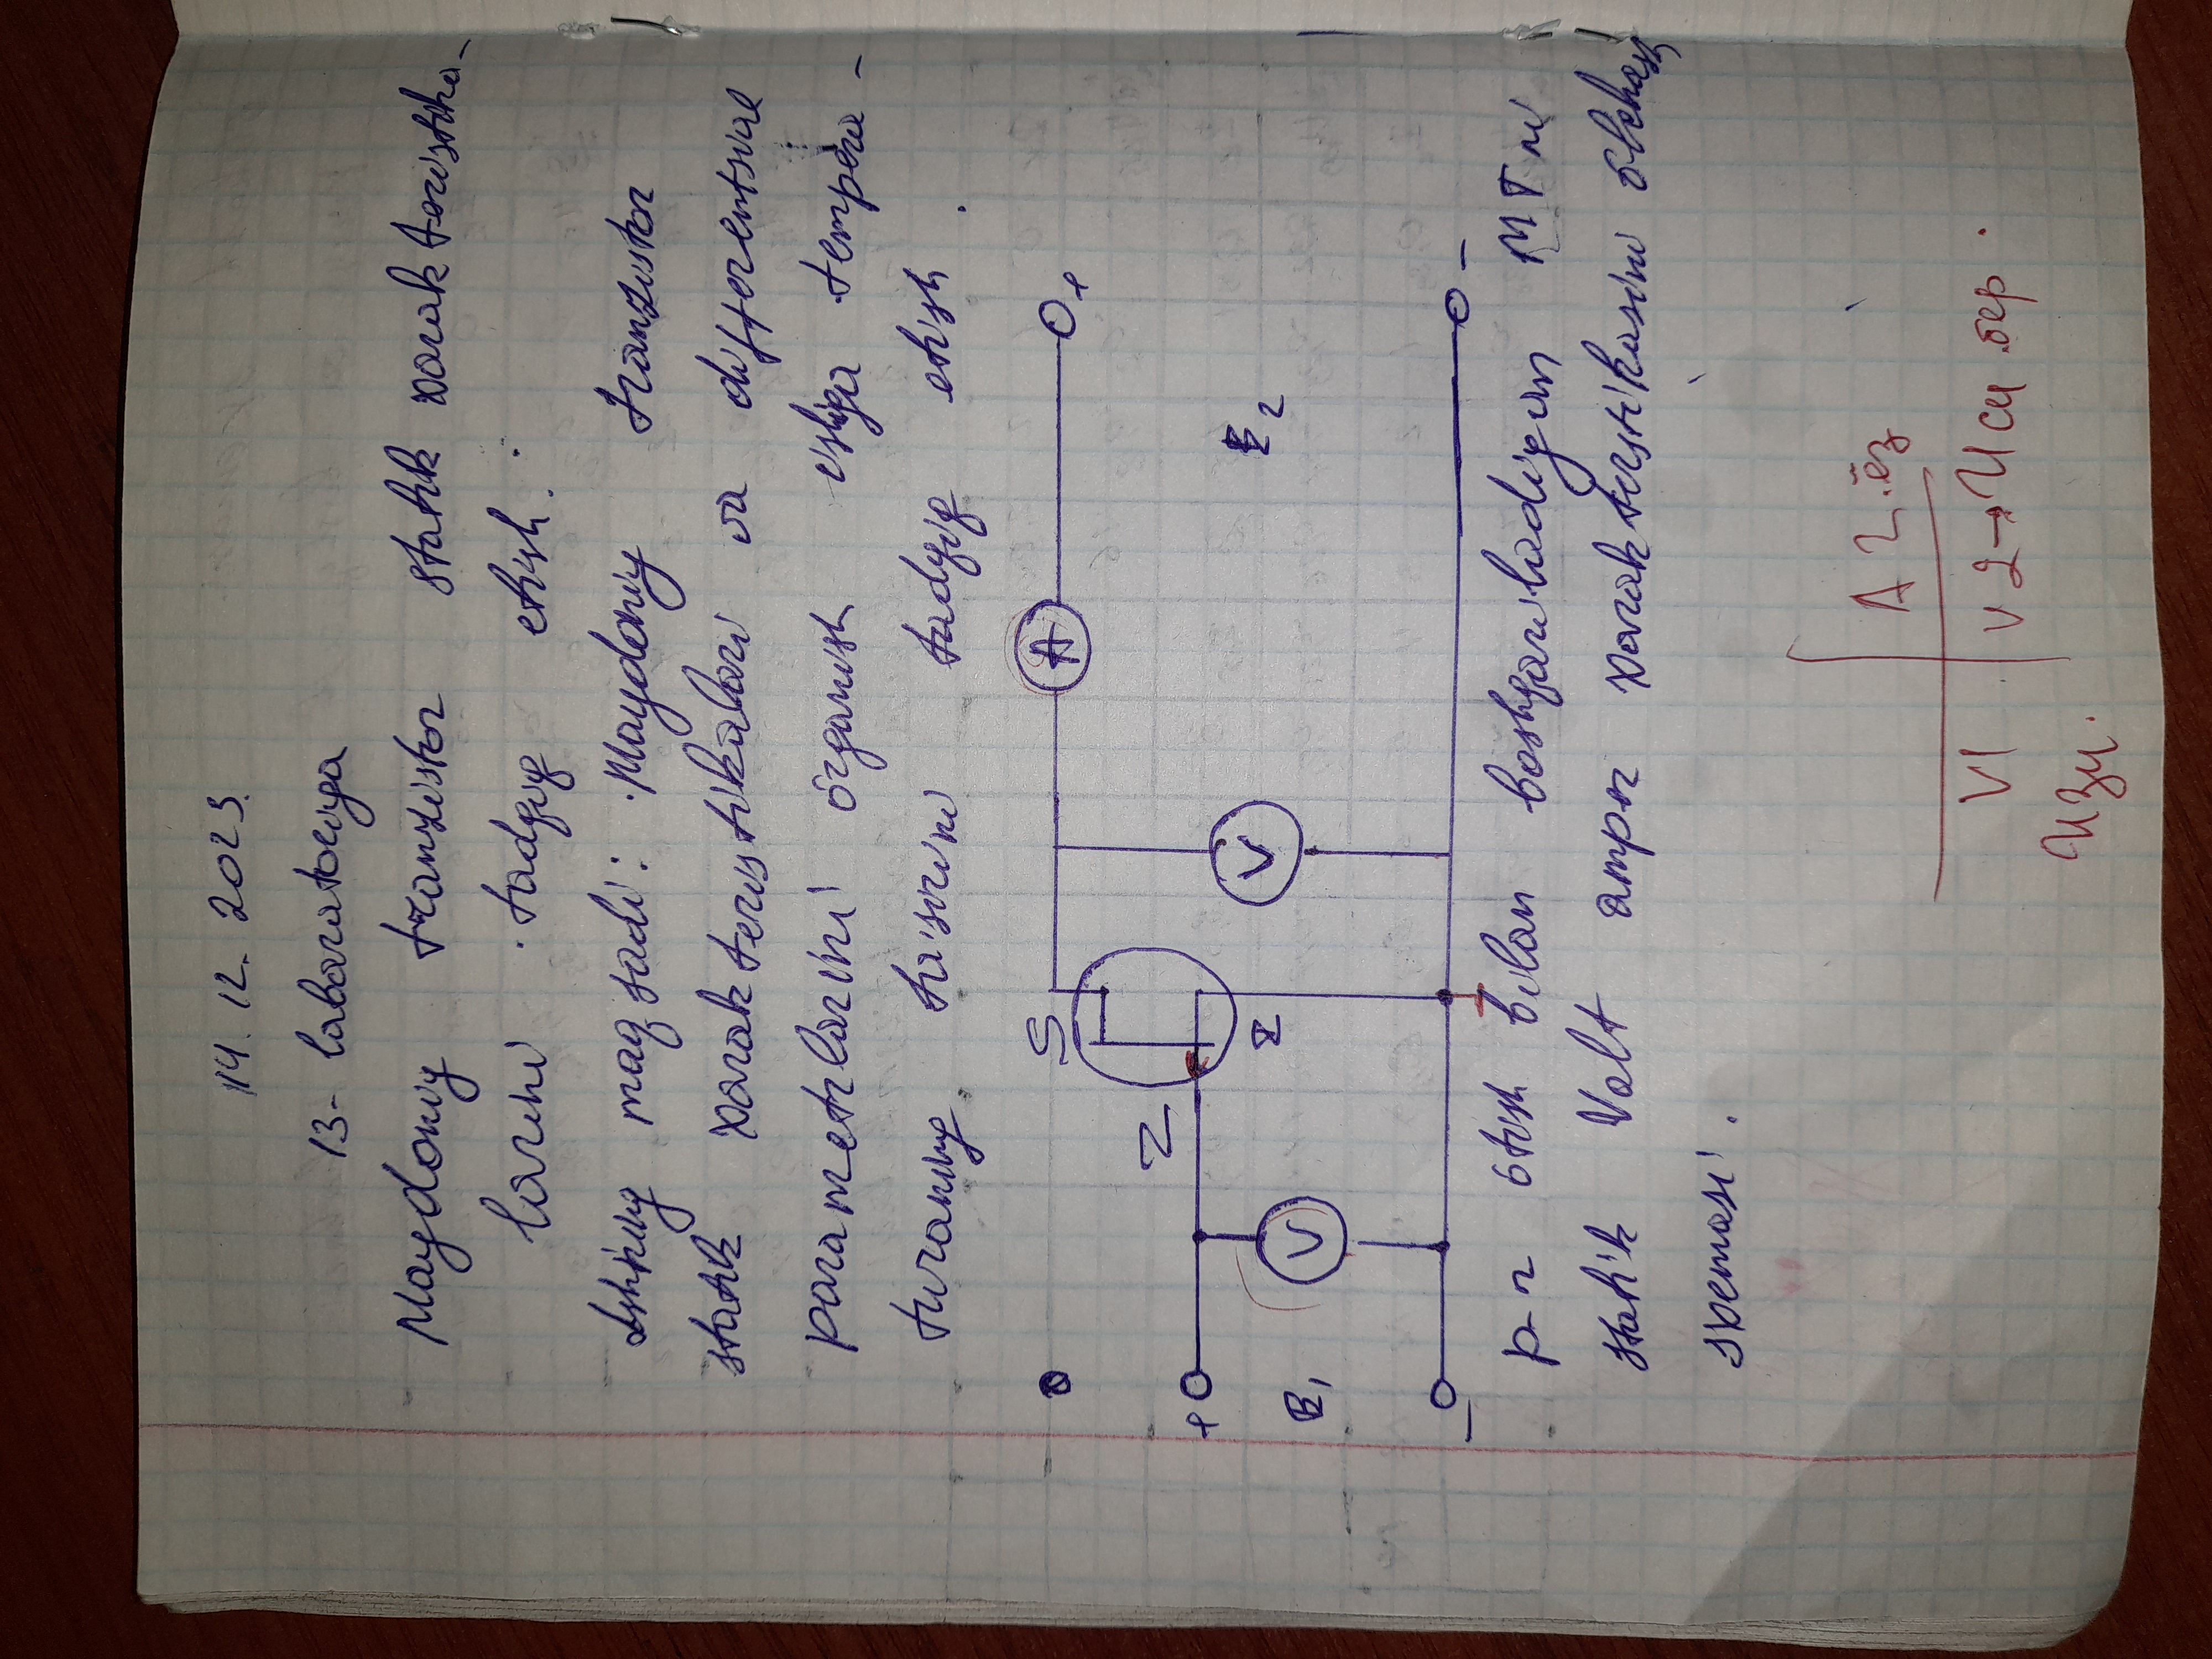 14. 12. 2023.
13- laboratoriya
Maydoniy tranzistor statik xarakteristika-
larini tadqiq etish.
Ishning maqsadi: Maydoniy tranzistor
statik xarakteristikalari va differentsial
parametrlarini o'rganish ishiga tempera-
turaning ta'sirini tadqiq etish.
S
A
O+
Z
V
I
E2
+O
V
E1
p-n o'tish bilan boshqariladigan MT ni
statik Volt amper xarakteristikasini o'lchash
sxemasi.
A 2.ёз
V1 V2→Uси бер.
Uзи.